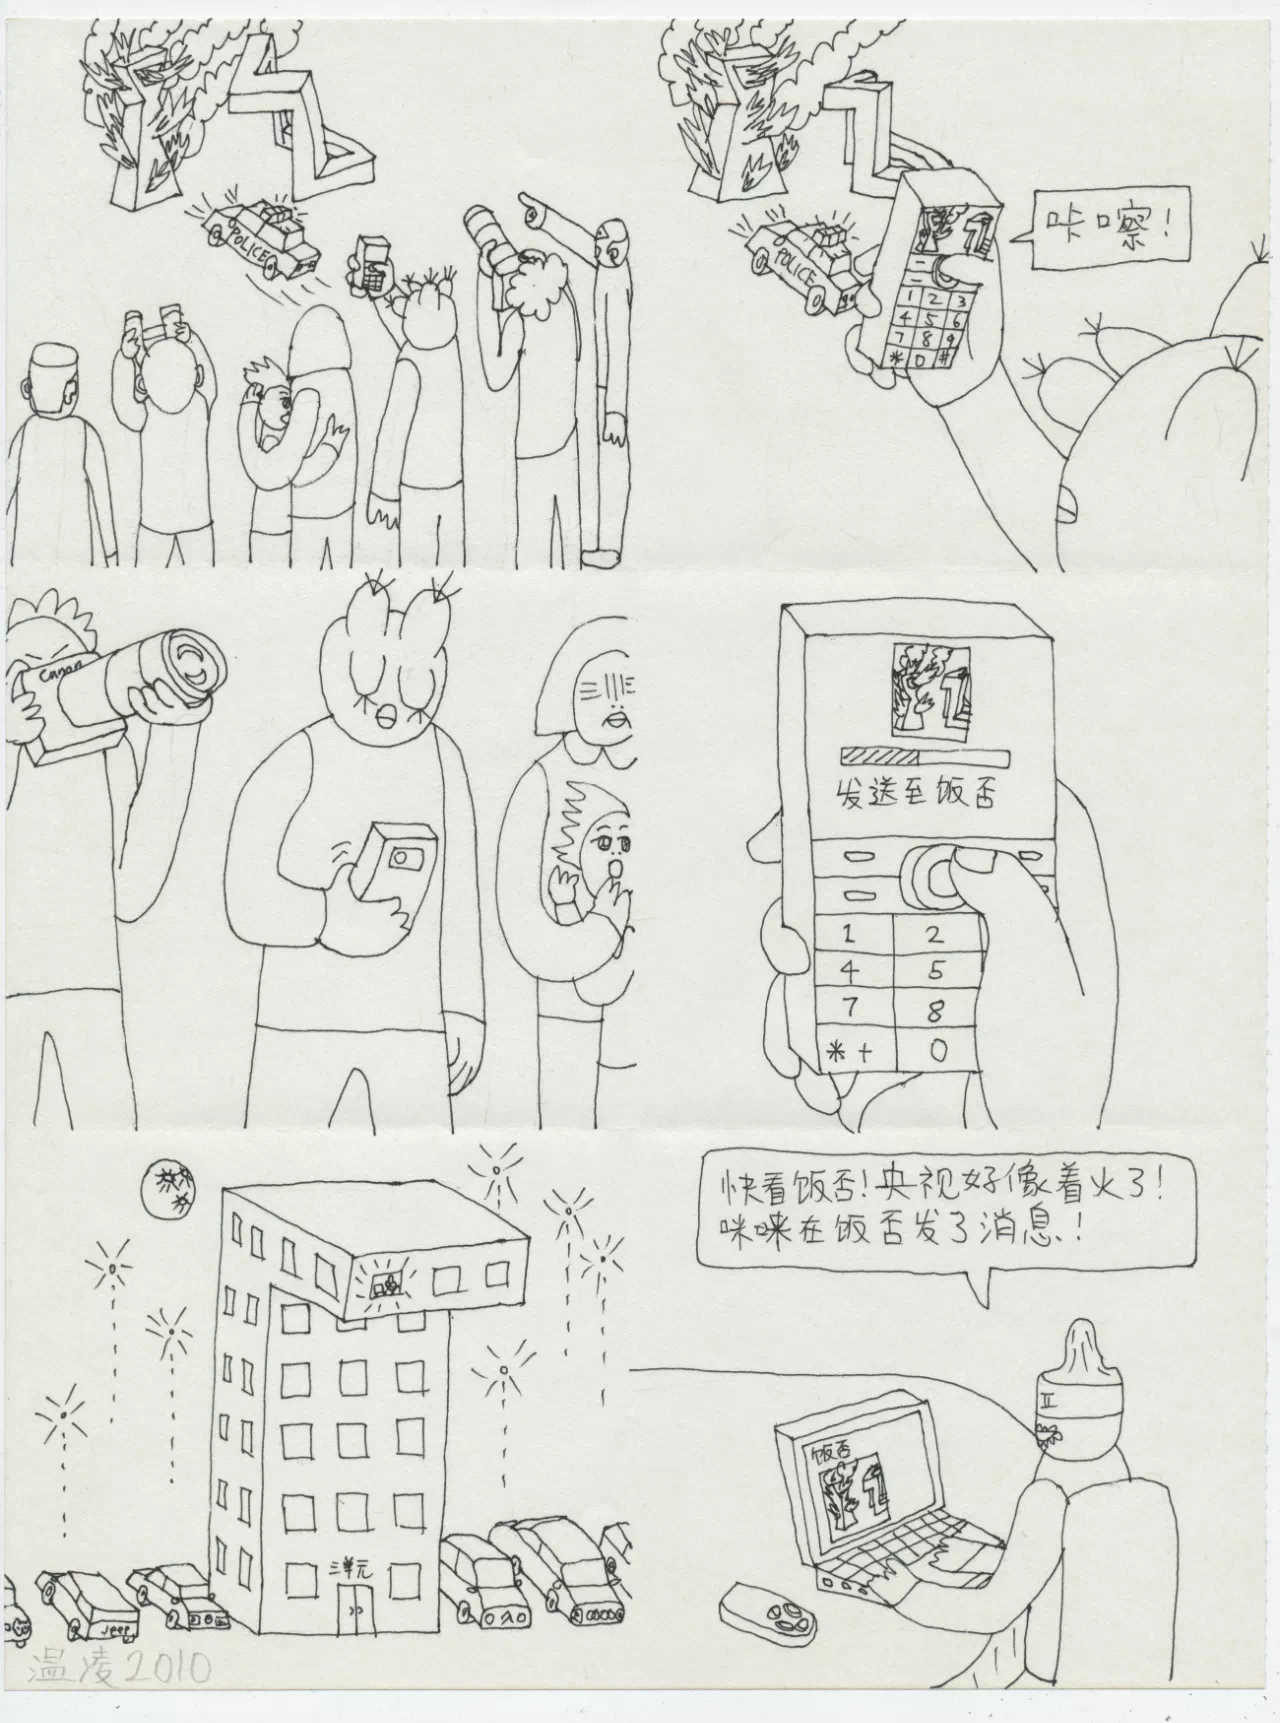 POLICE
POLICE
咔嚓！
1 2 3
4 5 6
7 8 9
* 0 #
Canon
发送至饭否
1 2
4 5
7 8
* + 0
三单元
Jeep
快看饭否！央视好像着火了！
咪咪在饭否发了消息！
II
饭否
温凌2010